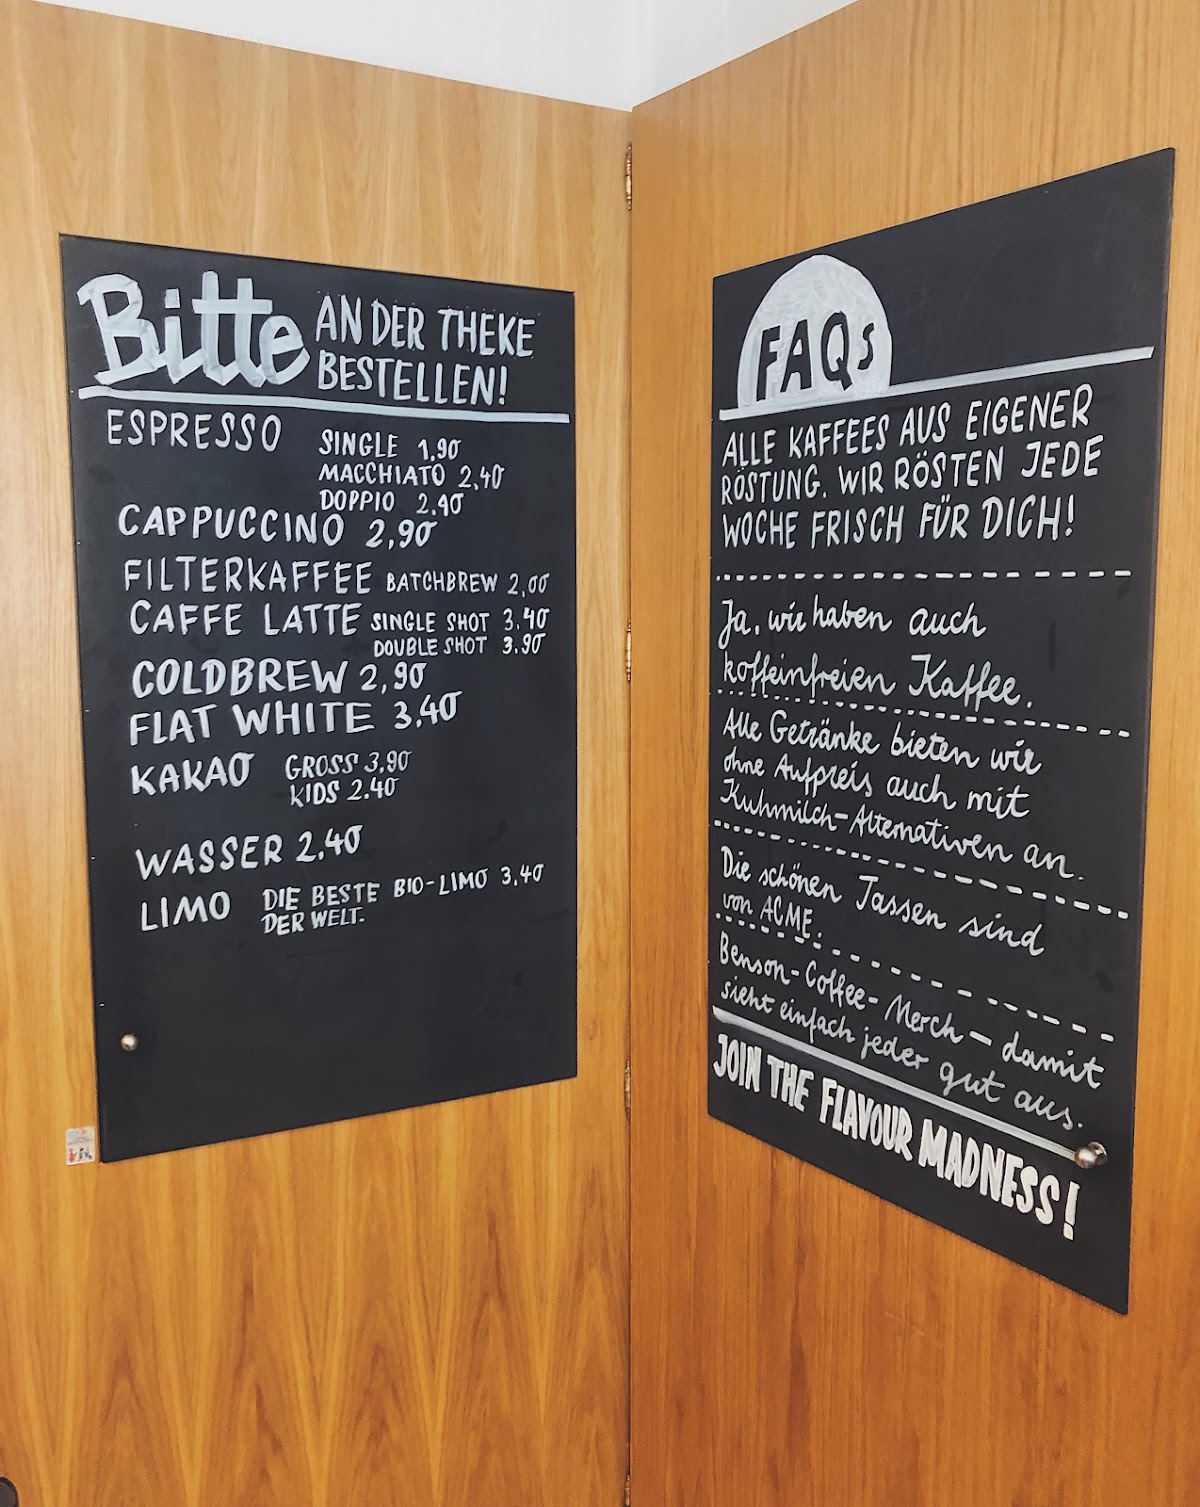 Bitte AN DER THEKE
BESTELLEN!
ESPRESSO SINGLE 1,90
MACCHIATO 2,40
DOPPIO 2,40
CAPPUCCINO 2,90
FILTERKAFFEE BATCHBREW 2,00
CAFFE LATTE SINGLE SHOT 3.40
DOUBLE SHOT 3.90
COLDBREW 2,90
FLAT WHITE 3.40
KAKAO GROSS 3,90
KIDS 2.40
WASSER 2.40
LIMO DIE BESTE BIO-LIMO 3,40
DER WELT.
FAQs
ALLE KAFFEES AUS EIGENER
RÖSTUNG. WIR RÖSTEN JEDE
WOCHE FRISCH FÜR DICH!
Ja, wir haben auch
koffeinfreien Kaffee.
Alle Getränke bieten wir
ohne Aufpreis auch mit
Kuhmilch-Alternativen an.
Die schönen Tassen sind
von ACME.
Benson-Coffee-Merch - damit
sieht einfach jeder gut aus.
JOIN THE FLAVOUR MADNESS!